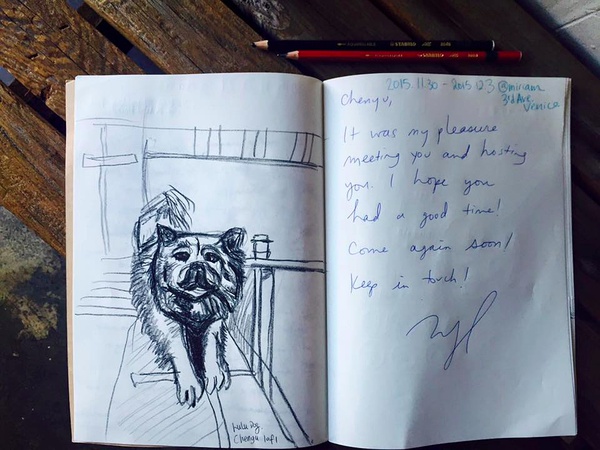 2015.11.30 - 2015.12.3 @miriam
3rd Ave.
Venice
Chenyu,
It was my pleasure
meeting you and hosting
you. I hope you
had a good time!
Come again soon!
Keep in touch!
Chenyu